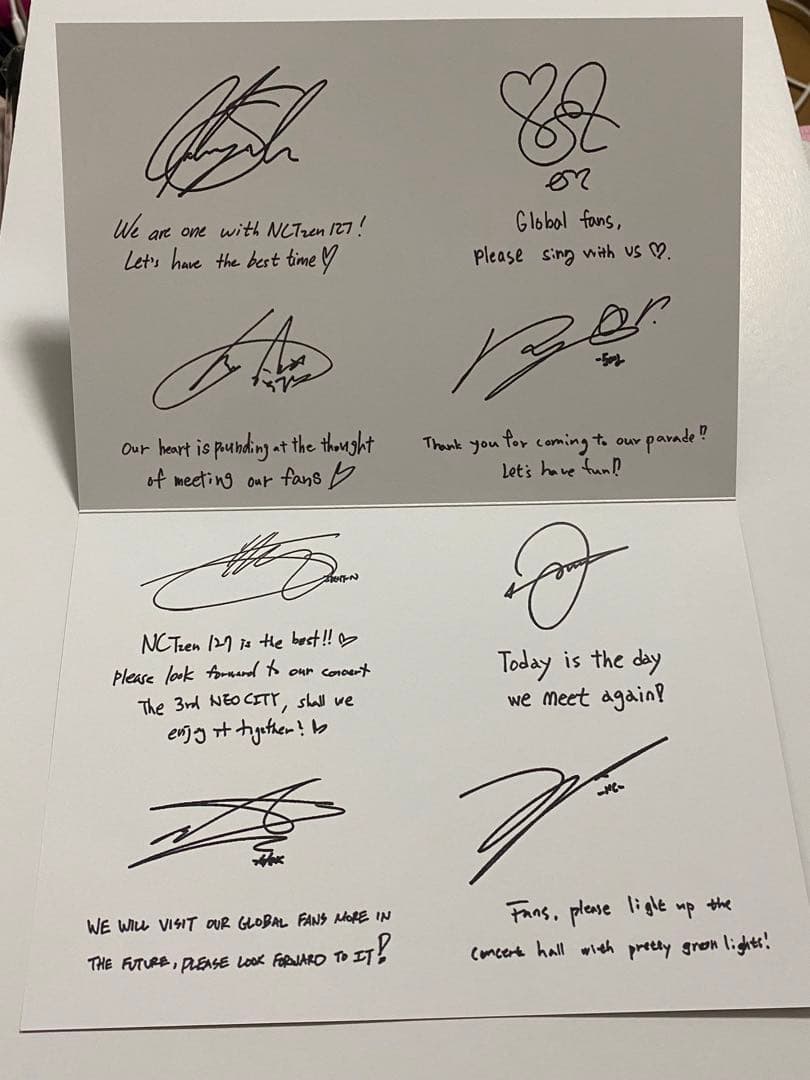 We are one with NCTzen 127!
Let's have the best time♡
Global fans,
please sing with us ♡.
Our heart is pounding at the thought
of meeting our fans ♡
Thank you for coming to our parade!!
Let's have fun!!
NCTzen 127 is the best!! ♡
Please look forward to our concert
The 3rd NEO CITY, shall we
enjoy it together! ♡
Today is the day
we meet again!
WE WILL VISIT OUR GLOBAL FANS MORE IN
THE FUTURE, PLEASE LOOK FORWARD TO IT!
Fans, please light up the
concert hall with pretty green lights!